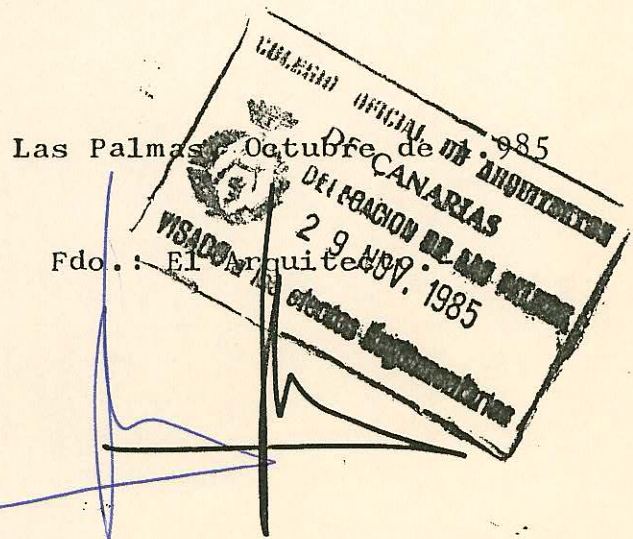 Las Palmas, Octubre de 1.985
Fdo.: El Arquitecto.
COLEGIO OFICIAL DE ARQUITECTOS
DE CANARIAS
DELEGACION DE LAS PALMAS
29 NOV. 1985
VISADO a los efectos Reglamentarios